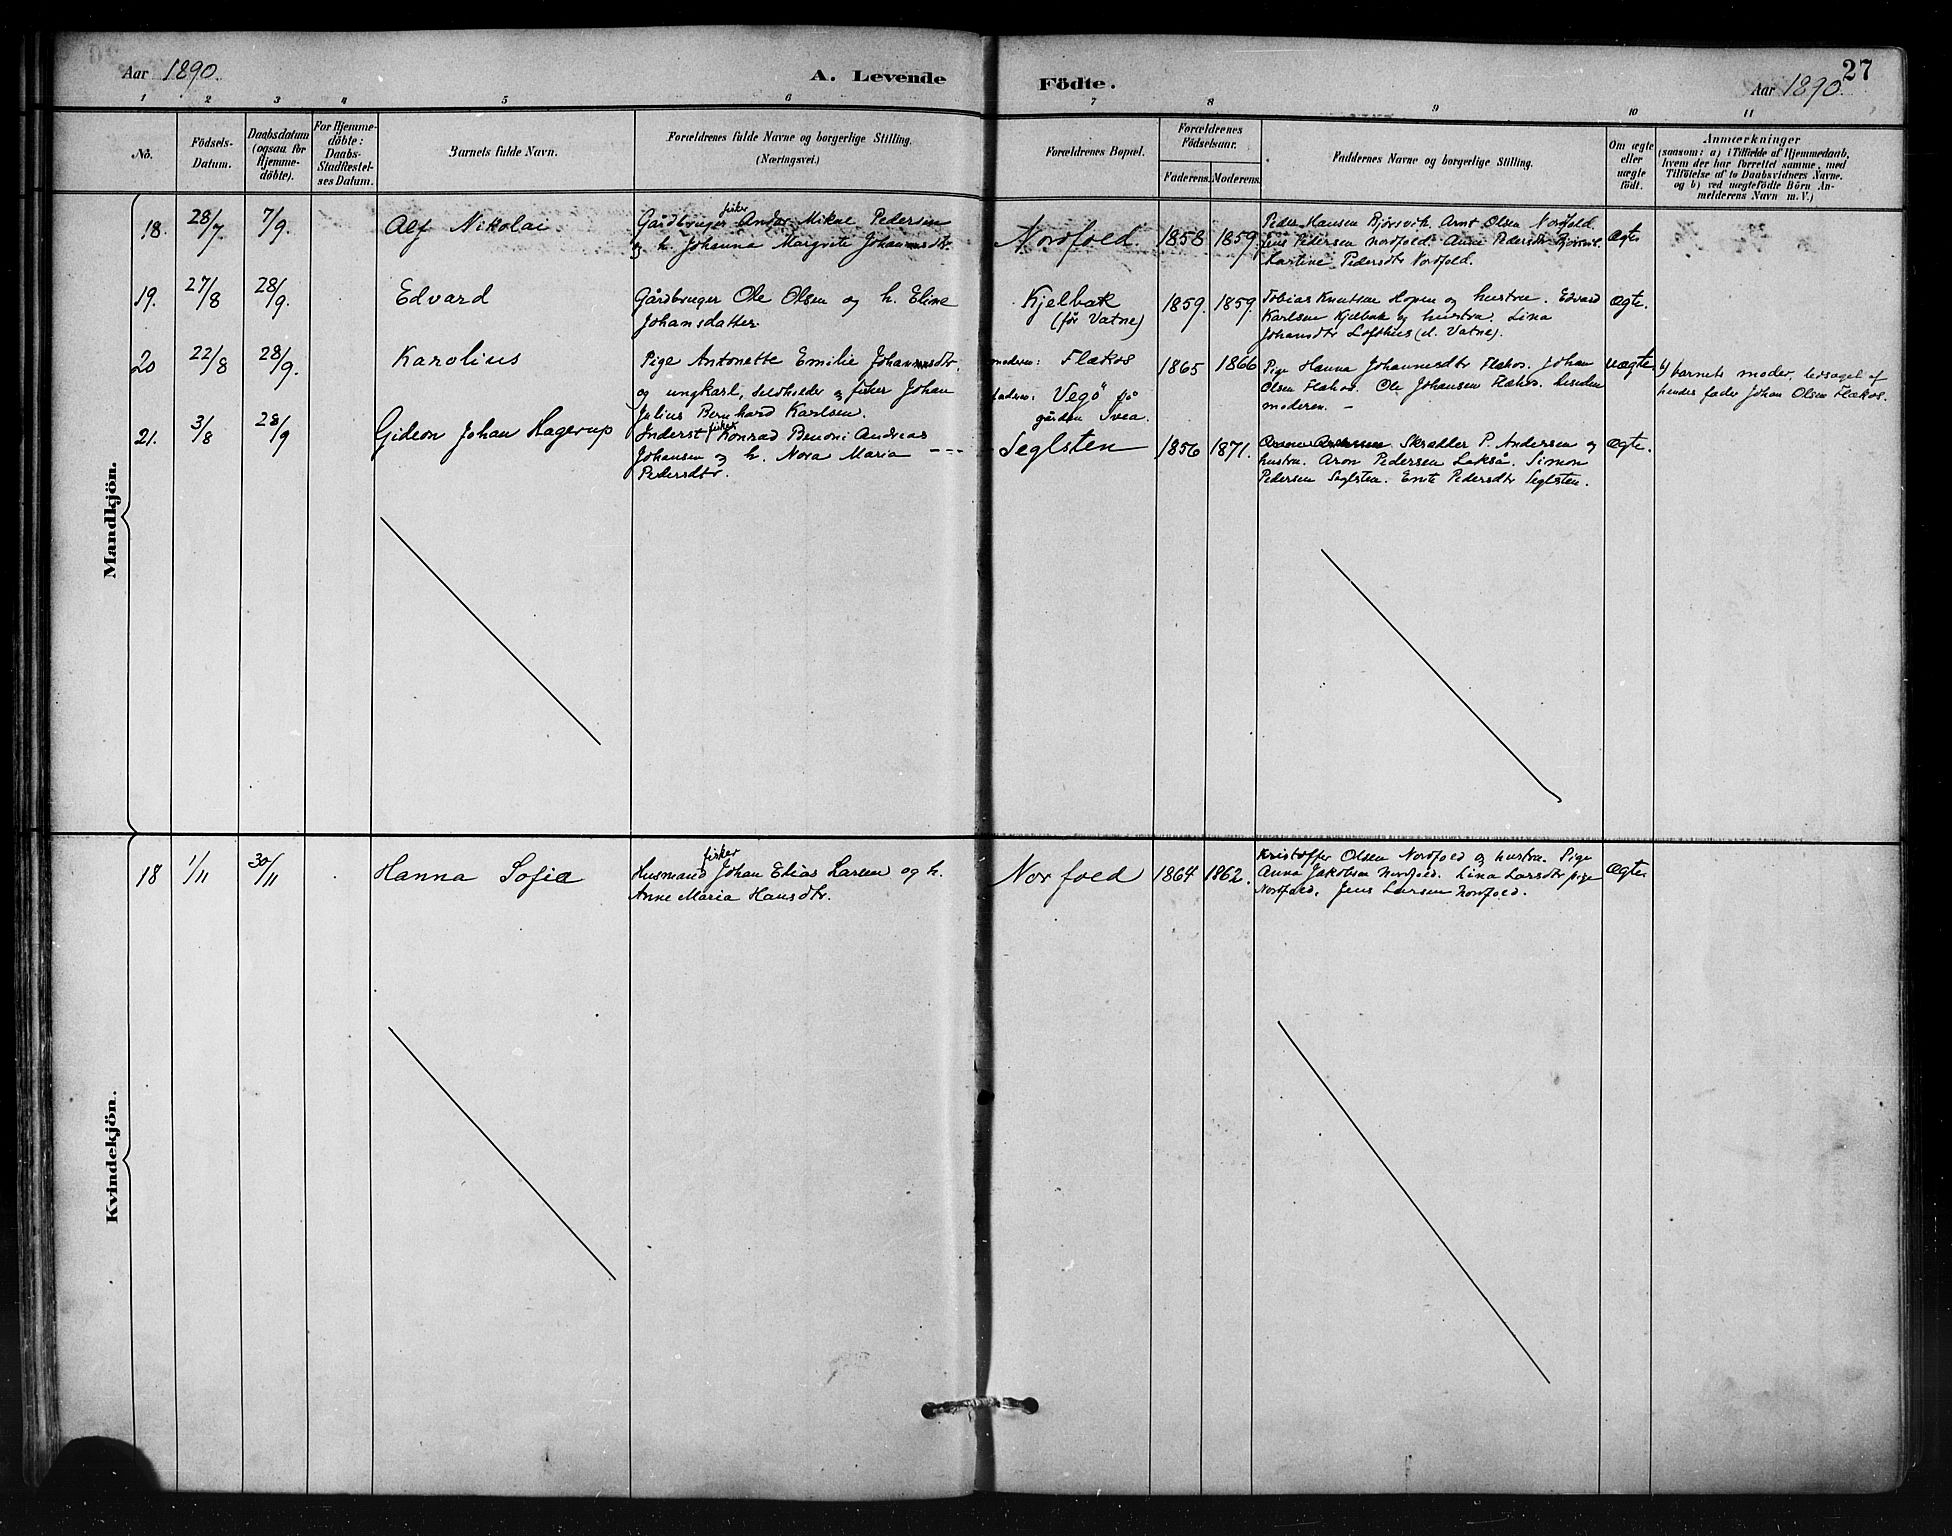 Aar 1890.
A. Levende
Födte.
Aar 1890.
27
1 2 3 4 5 6 7 8 9 10 11
No.
Födsels-
Datum.
Daabsdatum
(ogsaa for
Hjemme-
döbte).
For Hjemme-
döbte:
Daabs-
Stadfæstel-
ses Datum.
Barnets fulde Navn.
Forældrenes fulde Navne og borgerlige Stilling.
(Næringsvei.)
Forældrenes Bopæl.
Forældrenes
Födselsaar.
Faderens. Moderens.
Faddernes Navne og borgerlige Stilling.
Om ægte
eller
uægte
födt.
Anmærkninger
(saasom: a) i Tilfælde af Hjemmedaab,
hvem der har forrettet samme, med
Tilföielse af to Daabsvidners Navne.
og b) ved uægtefödte Börn An-
melderens Navn m. V.)
Mandkjön.
18. 28/7 7/9. Alf Nikolai
fisker
Gårdbruger Andor Mikal Pedersen
og h. Johanna Margrite Johannesdtr.
Nordfold. 1858 1859
Peder Hansen Björsvik. Arnt Olsen Nordfold.
Jens Pedersen Nordfold. Anne Pedersdtr Björsvik.
Hartine Pedersdtr Nordfold.
Ægte
19. 27/8 28/9. Edvard
Gårdbruger Ole Olsen og h. Eline
Johansdatter.
Kjelbak
(för Vatne)
1859. 1859.
Tobias Knutsen Hopen og hustru. Edvard
Karlsen Kjelbak og hustru. Lina
Johansdtr Lofthus (d. Vatne).
Ægte.
20 22/8 28/9. Karolius
Pige Antonette Emilie Johannesdtr.
og ungkarl, selvholder og fisker Johan
Julius Bernhard Karlsen.
moderen: Flækos
faderen: Vegö på
gården Ivea.
1865 1866
Pige Hanna Johannesdtr Flækos. Johan
Olsen Flækos. Ole Johansen Flækos. desuden
moderen. –
uægte
b) barnets moder, ledsaget af
hendes fader Johan Olsen Flækos.
21. 3/8 28/9 Gideon Johan Hagerup
Inderst fisker Konrad Benoni Andreas
Johansen og h. Nora Maria - - -
Pedersdtr.
Seglsten 1856 1871.
Skrædder P. Andersen og
hustru. Aron Pedersen Lakså. Simon
Pedersen Seglsten. Emte Pedersdtr Seglsten.
Ægte.
Kvindekjön.
18 1/11 30/11 Hanna Sofia
fisker
Husmand Johan Elias Larsen og h.
Anne Maria Hansdtr.
Norfold 1864 1862.
Kristoffer Olsen Nordfold og hustru. Pige
Anna Jakobsen Nordfold. Lina Larsdtr pige
Nordfold. Jens Larsen Nordfold.
Ægte